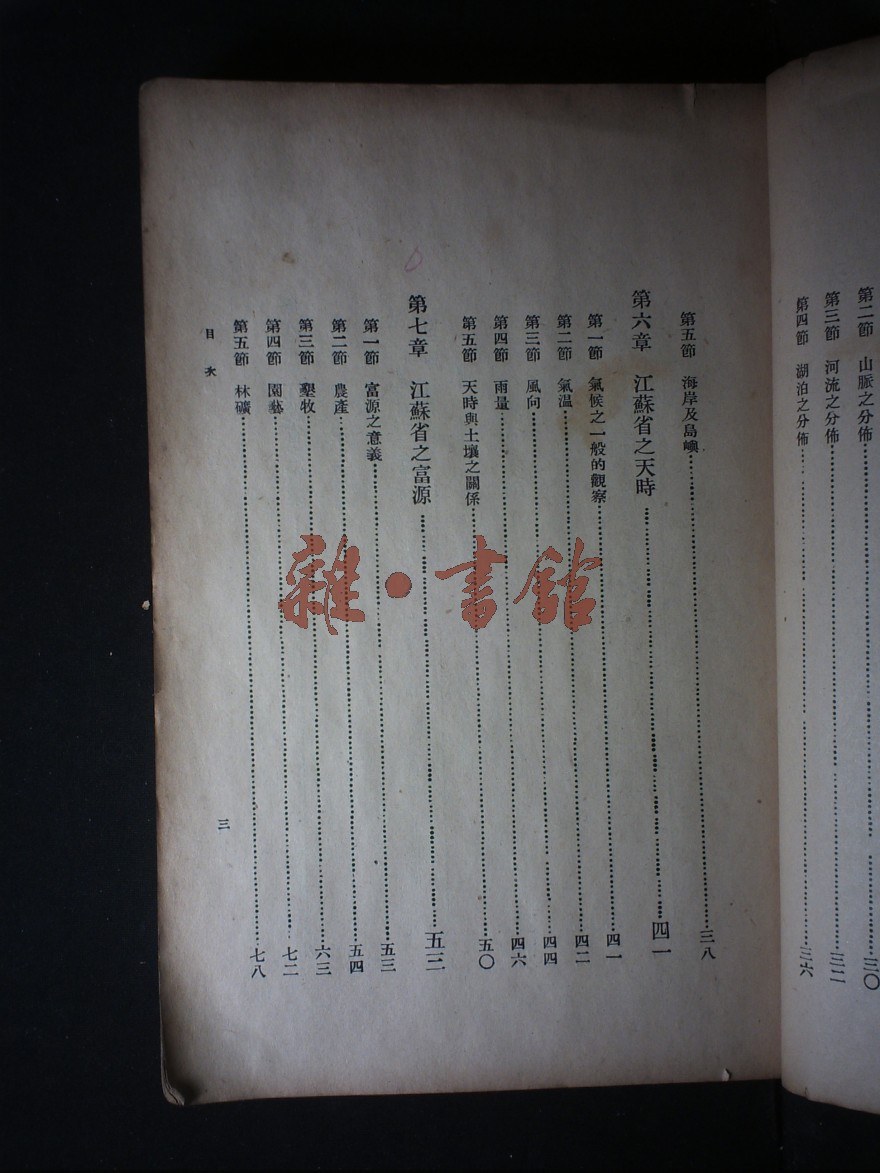 第二節　山脈之分佈……三〇
第三節　河流之分佈……三二
第四節　湖泊之分佈……三六
第五節　海岸及島嶼……三八
第六章　江蘇省之天時……四一
第一節　氣候之一般的觀察……四一
第二節　氣溫……四二
第三節　風向……四四
第四節　雨量……四六
第五節　天時與土壤之關係……五〇
第七章　江蘇省之富源……五三
第一節　富源之意義……五三
第二節　農產……五四
第三節　墾牧……六三
第四節　園藝……七二
第五節　林礦……七八
目次
三
雜·書館